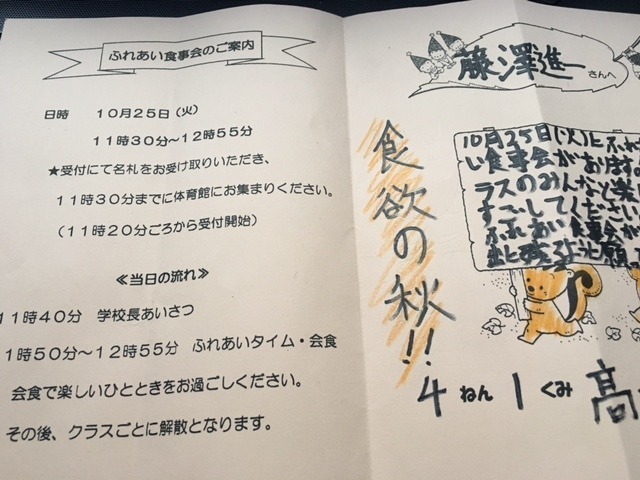 ふれあい食事会のご案内
日時　１０月２５日（火）
１１時３０分～１２時５５分
★受付にて名札をお受け取りいただき、
１１時３０分までに体育館にお集まりください。
（１１時２０分ごろから受付開始）
≪当日の流れ≫
１１時４０分　学校長あいさつ
１１時５０分～１２時５５分　ふれあいタイム・会食
会食で楽しいひとときをお過ごしください。
その後、クラスごとに解散となります。
藤澤進一さんへ
食欲の秋!!
10月25日(火)にふれ
い食事会があります。
ラスのみんなと楽
すごしてください
ふれあい食事会が
4ねん1くみ 高